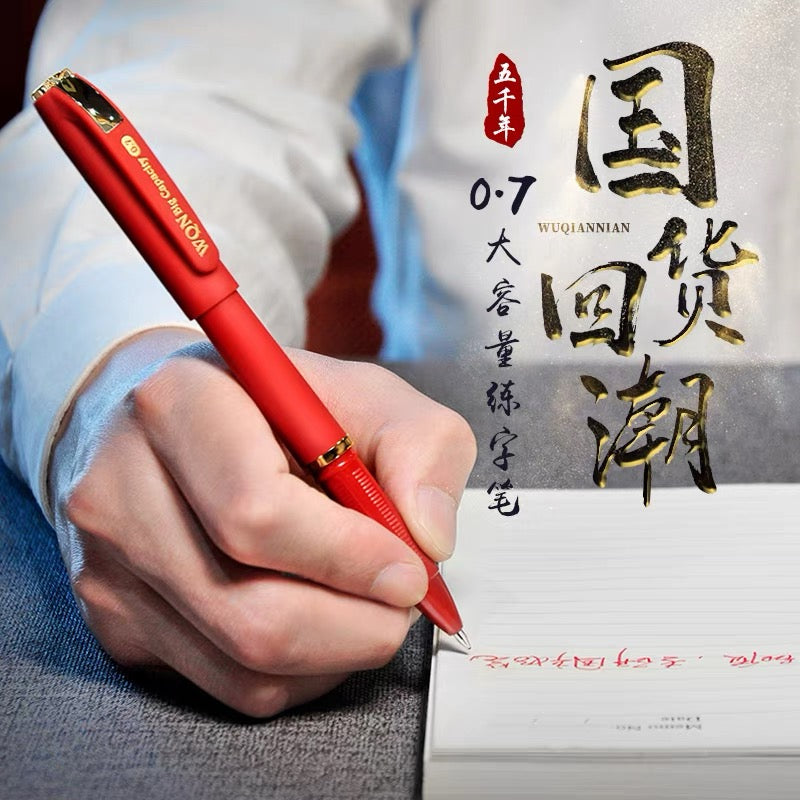 国货
回潮
五千年
WUQIANNIAN
0.7
大容量练字笔
WQN Big Capacity 0.7